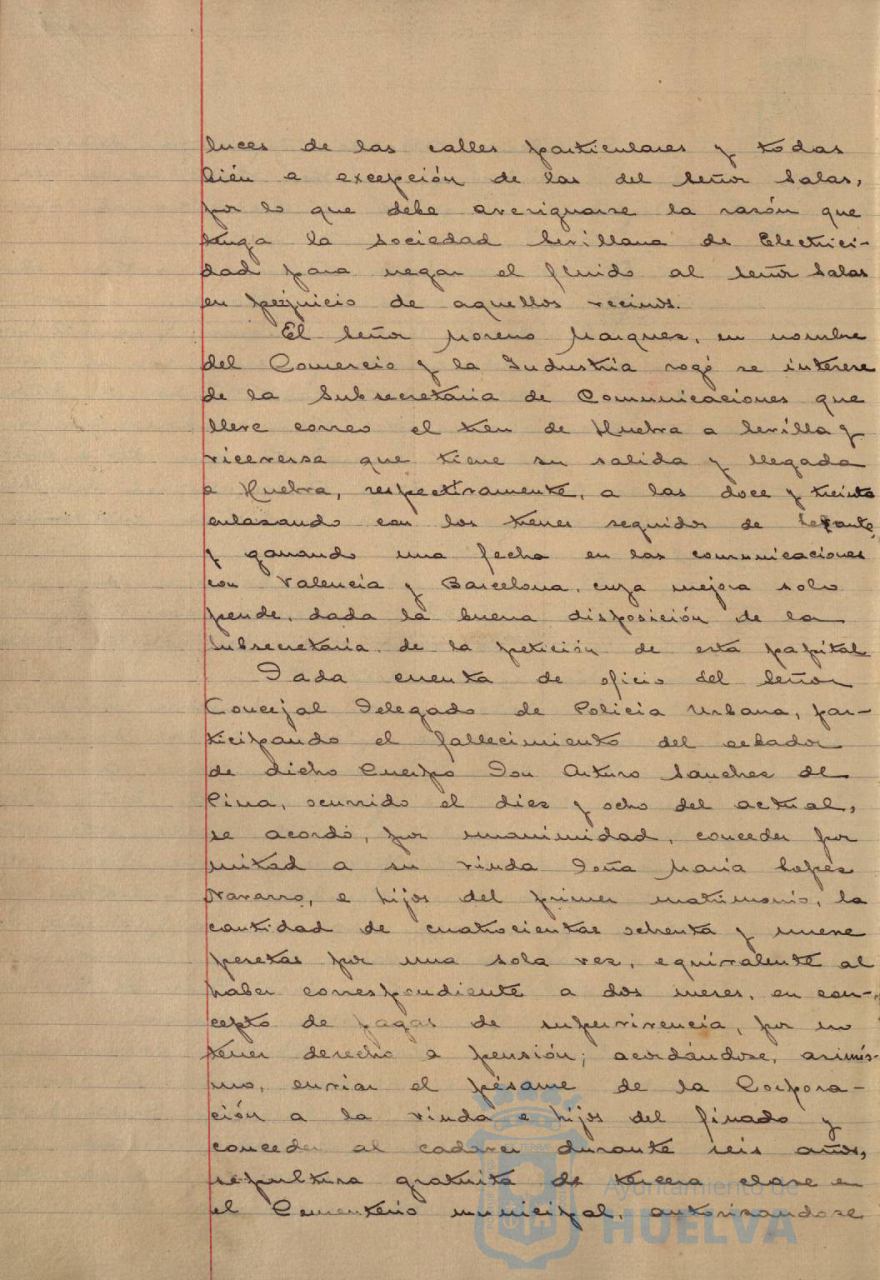 luces de las calles particulares y todas
bién a excepción de las del Señor Salas,
por lo que debe averiguarse la razón que
tenga la Sociedad Sevillana de Electrici-
dad para negar el fluido al Señor Salas
en perjuicio de aquellos vecinos.
El Señor Moreno Marquez, en nombre
del Comercio y la Industria rogó se interese
de la Subsecretaria de Comunicaciones que
lleve correo el tren de Huelva a Sevilla y
viceversa que tiene su salida y llegada
a Huelva, respectivamente, a las doce y treinta
enlasando con los trenes seguidos de Levante,
y ganando una fecha en las comunicaciones
con Valencia y Barcelona, cuya mejora solo
pende, dada la buena disposición de la
Subsecretaria, de la petición de esta papital
Dada cuenta de oficio del Señor
Concejal Delegado de Policia Urbana, par-
ticipando el fallecimiento del celador
de dicho Cuerpo Don Arturo Sanchez de
Cina, ocurrido el diez y ocho del actual,
se acordó, por unanimidad, conceder por
mitad a su viuda Doña Maria Lopez
Navarro, e hijos del primer matrimonio, la
cantidad de cuatrocientas ochenta y nueve
pesetas por una sola vez, equivalente al
haber correspondiente a dos meses, en con-
cepto de pagas de supervivencia, por no
tener derecho a pensión; acordándose, asimis-
mo, enviar el pésame de la Corpora-
ción a la viuda e hijos del finado y
conceder al cadaver durante seis años,
sepultura gratuita de tercera clase en
el Cementerio municipal, autorisandose
Ayuntamiento de
HUELVA